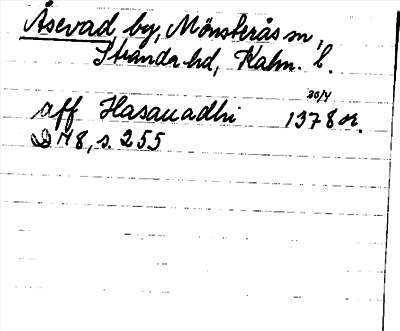 Åsevad, by, Mönsterås sn,
Stranda hd, Kalm. l.
30/4
aff Hasauadhi 1378 or.
D 78, s. 255